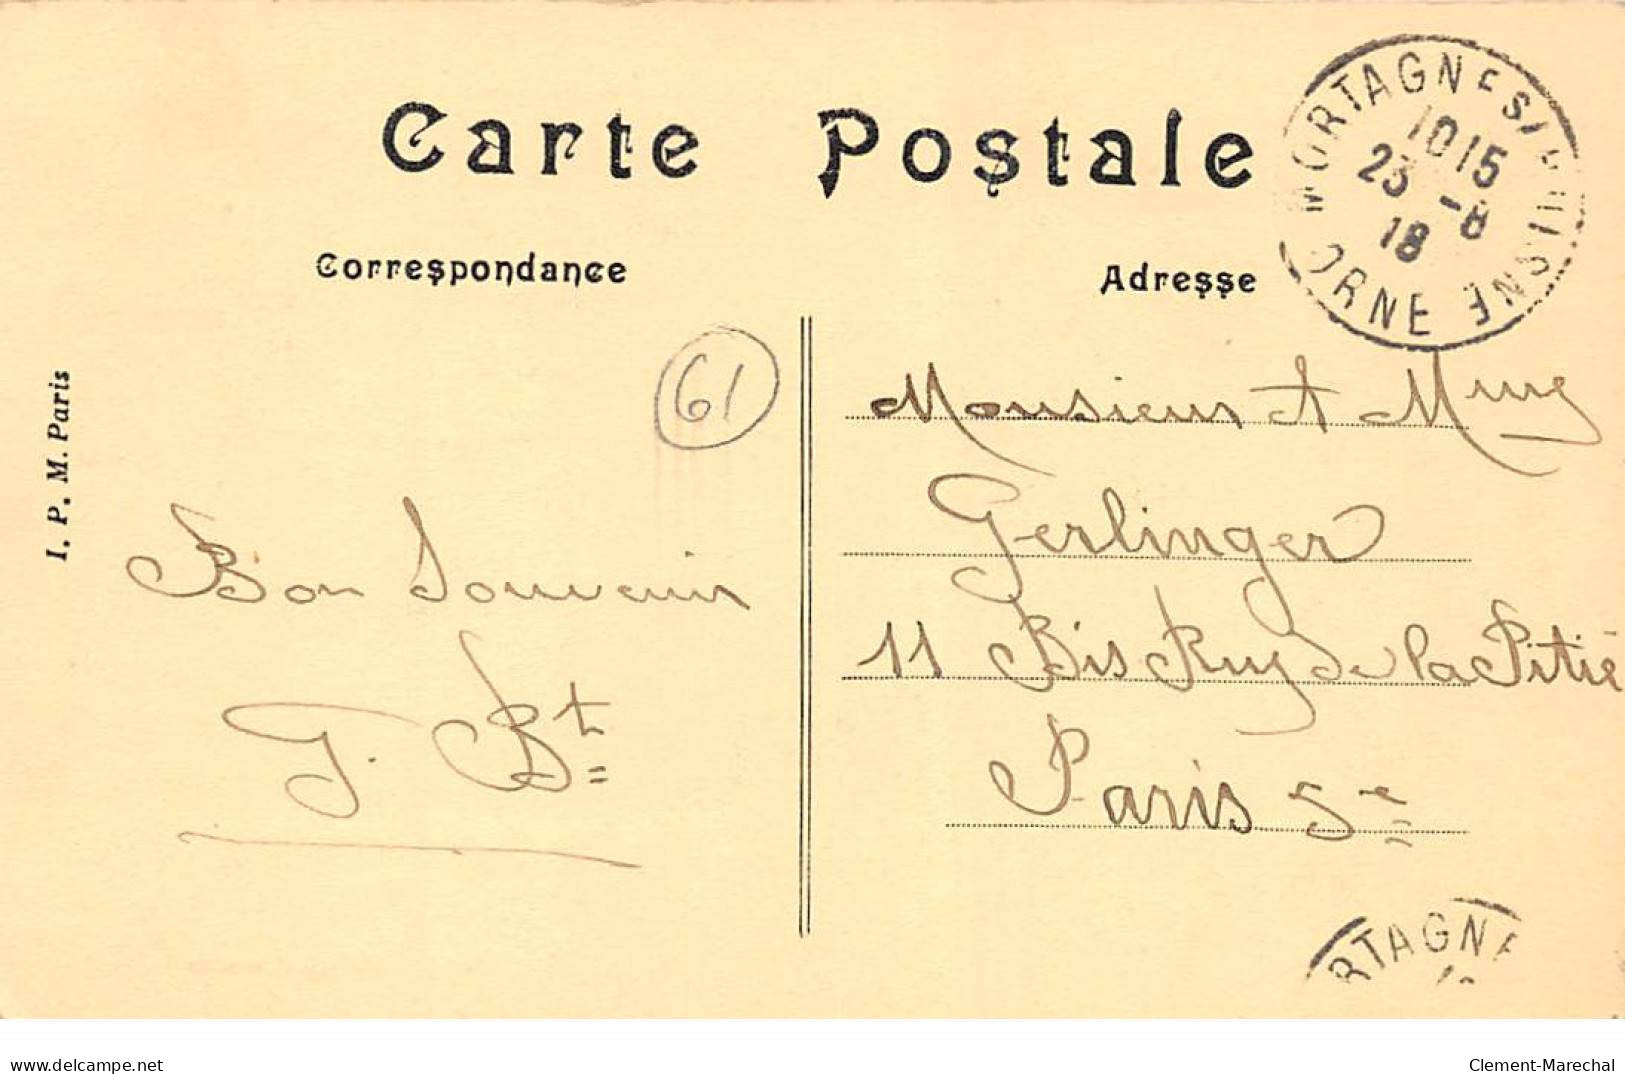 Carte Postale
Correspondance
Adresse
MORTAGNE S/HUISNE
10 15
23 -8
18
ORNE
61
I. P. M. Paris
Monsieur et Mme
Gerlinger
11 Bis Rue de la Pitié
Paris 5e
Bon Souvenir
G. Bt
RTAGNE
delcampe.net
Clement-Marechal